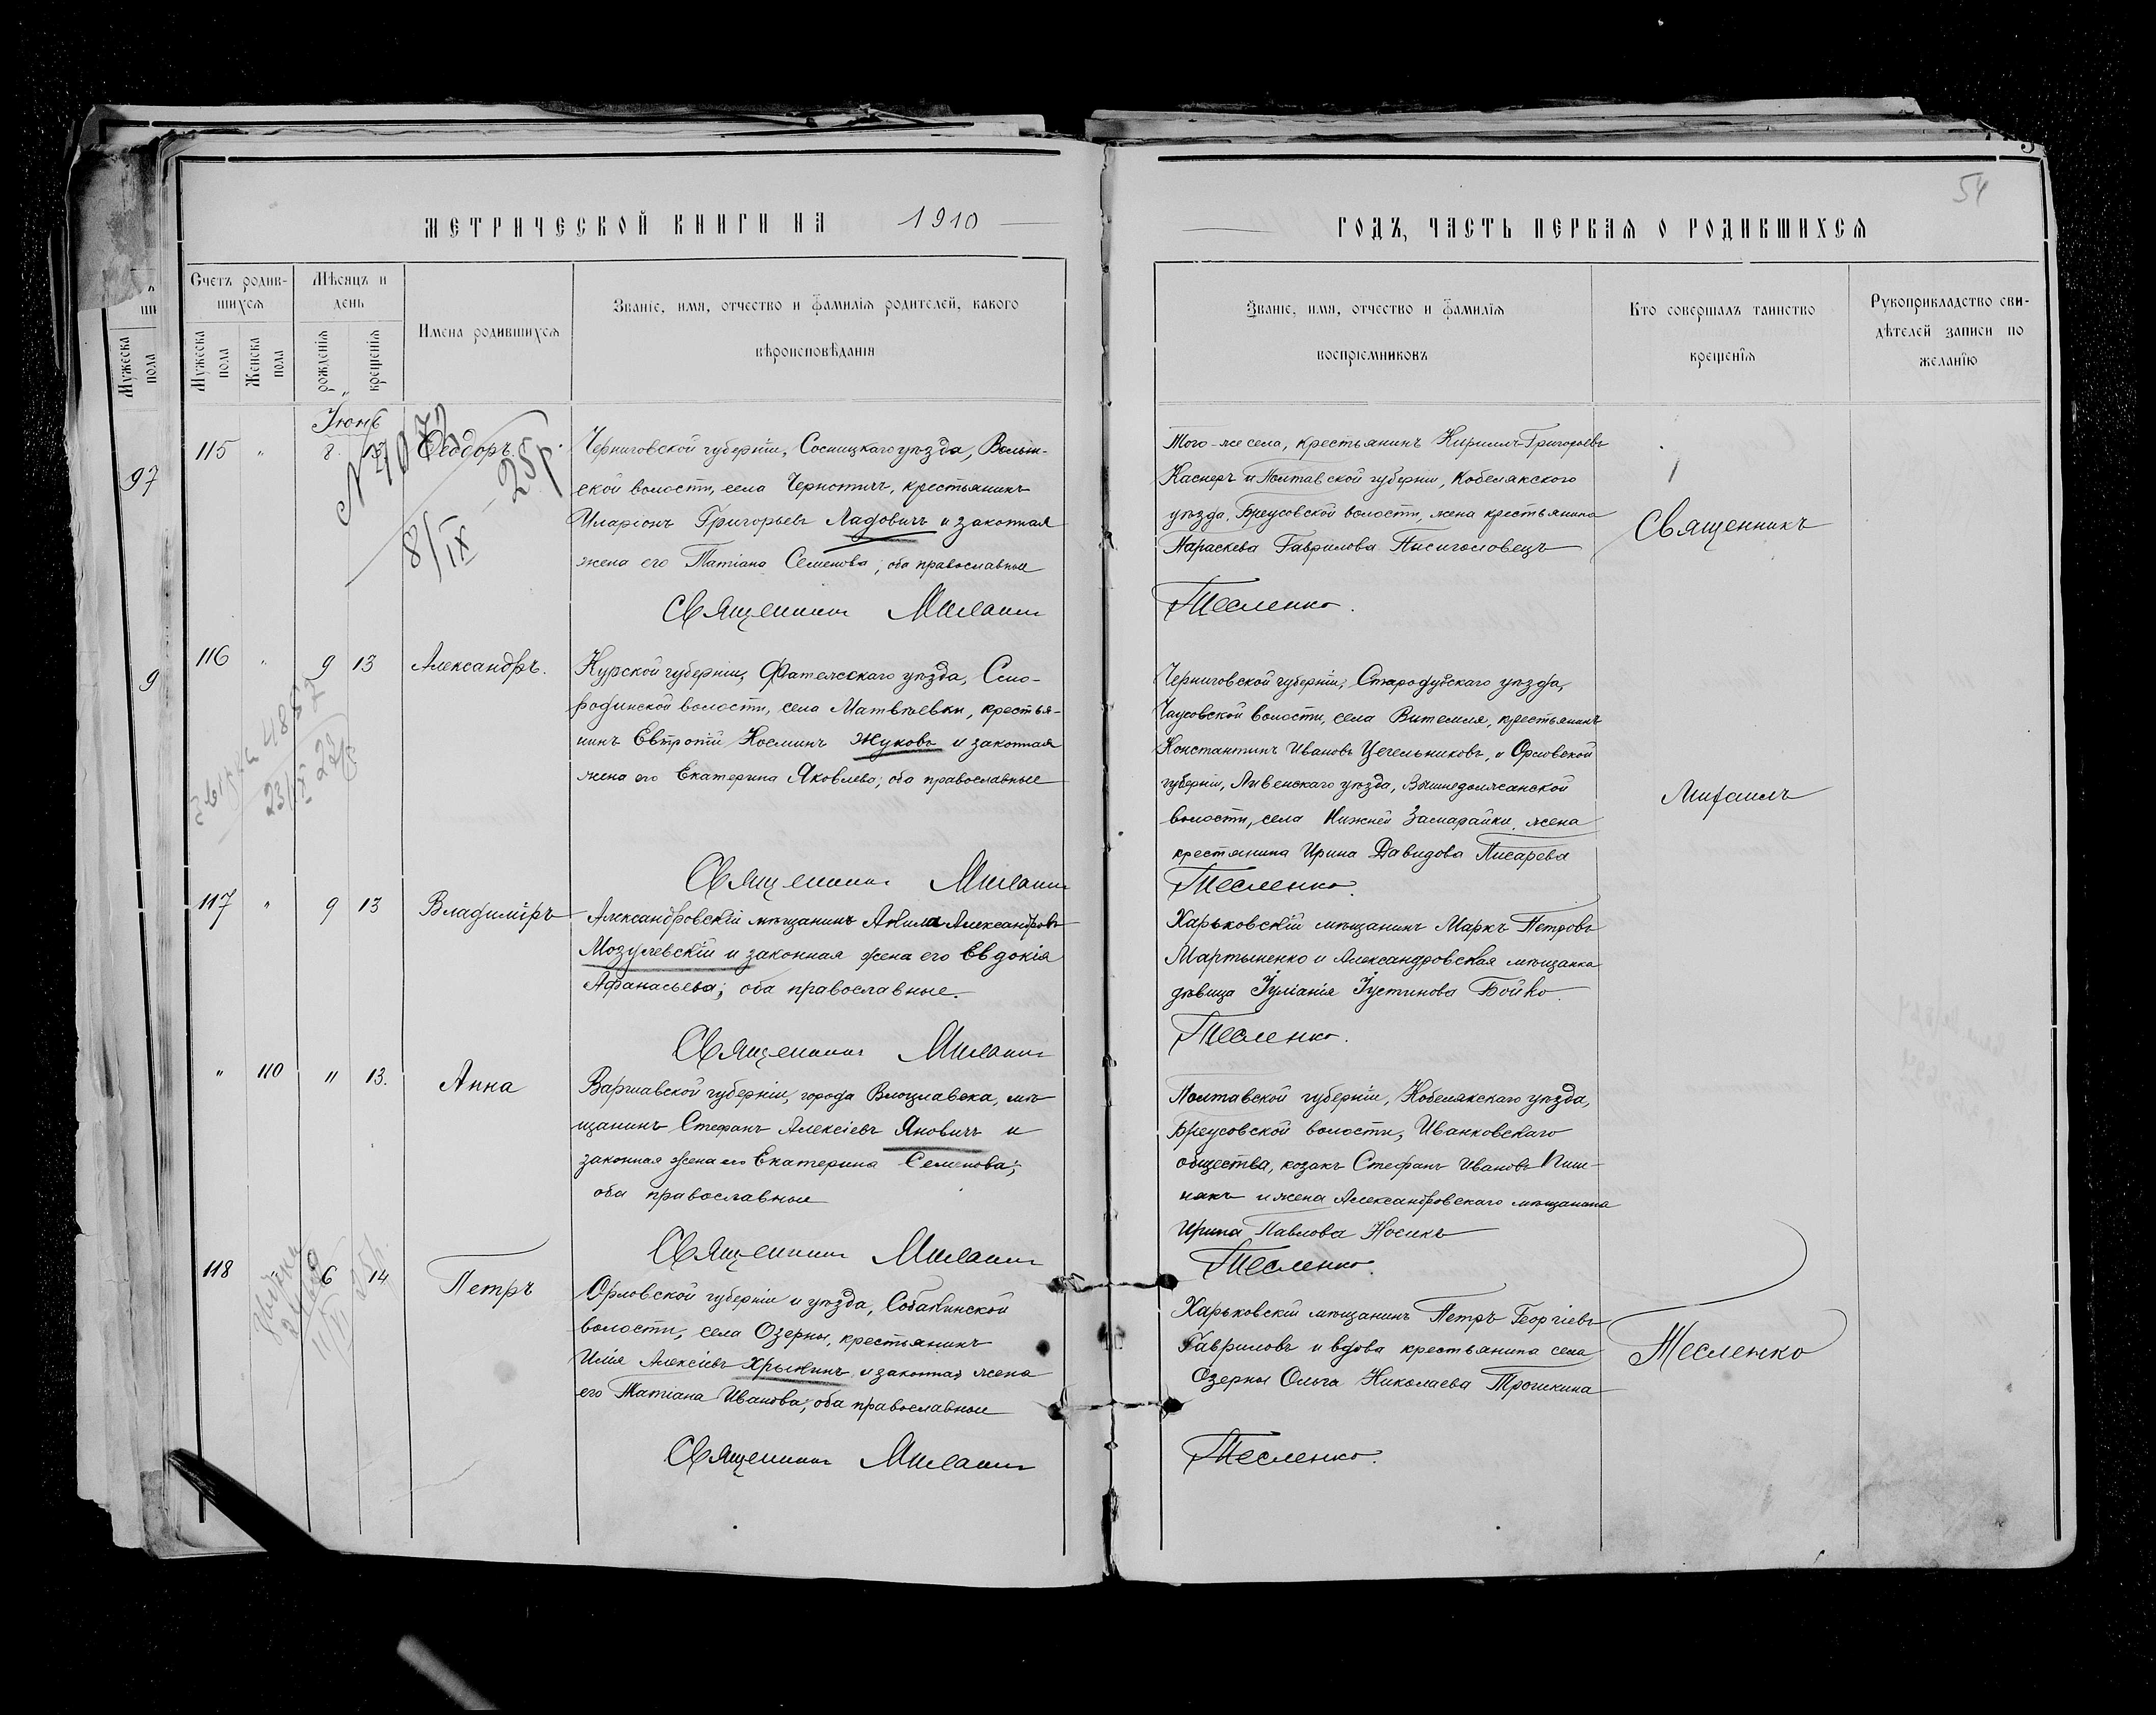 54
МЕТРИЧЕСКОЙ КНИГИ НА 1910
ГОДЪ, ЧАСТЬ ПЕРВАЯ О РОДИВШИХСЯ
Счетъ родив-
шихся
Мужеска пола
Женска пола
Мѣсяцъ и
день
рожденія
крещенія
Имена родившихся
Званіе, имя, отчество и фамилія родителей, какого
вѣроисповѣданія
Званіе, имя, отчество и фамилія
воспріемниковъ
Кто совершалъ таинство
крещенія
Рукоприкладство сви-
дѣтелей записи по
желанію
Мужеска пола
97
9
Іюнь
115 " 8. 13 Ѳеодоръ.
8/IX 25р.
Черниговской губерніи, Сосницкаго уѣзда, Волын-
ской волости, села Чернотичъ, крестьянинъ
Иларіонъ Григорьевъ Ладовичъ и законная
жена его Татіана Семенова; оба православные
Священникъ
Того-же села, крестьянинъ Кириллъ Григорьевъ
Касперъ и Полтавской губерніи, Кобелякского
уѣзда, Бреусовской волости, жена крестьянина
Параскева Гаврилова Писиголовецъ
Тесленко.
116 " 9 13 Александръ.
Курской губерніи, Фатежскаго уѣзда, Смо-
родинской волости, села Матвѣевки, крестья-
нинъ Евтропій Косминъ Жуковъ и законная
жена его Екатерина Яковлева; оба православные
Священникъ
Черниговской губерніи, Стародубскаго уѣзда,
Чаусовской волости, села Витемля, крестьянинъ
Константинъ Ивановъ Цегельниковъ, и Орловской
губерніи, Ливенскаго уѣзда, Вышнедолжанской
волости, села Нижней Замарайки, жена
крестянина Ирина Давидова Писарева
Тесленко.
117 " 9 13 Владиміръ
Александровскій мѣщанинъ Акила Александровъ
Мозулевскій и законная жена его Евдокія
Афанасьева; оба православные.
Священникъ
Харьковскій мѣщанинъ Маркъ Петровъ
Мартыненко и Александровская мѣщанка
дѣвица Іуліанія Іустинова Бойко.
Тесленко.
" 110 11 13. Анна
Варшавской губерніи, города Влоцлавека, мѣ-
щанинъ Стефанъ Алексіевъ Яновичъ и
законная жена его Екатерина Семенова;
оба православные
Священникъ
Полтавской губерніи, Кобелякскаго уѣзда,
Бреусовской волости, Иванковскаго
общества, козакъ Стефанъ Ивановъ Пиш-
накъ и жена Александровскаго мѣщанина
Ирина Павлова Носикъ
Тесленко.
118 6 14 Петръ
Орловской губерніи и уѣзда, Собакинской
волости, села Озерны, крестьянинъ
Илія Алексіевъ Хрыкинъ и законная жена
его Татіана Иванова; оба православные
Священникъ
Харьковскій мѣщанинъ Петръ Георгіевъ
Гавриловъ и вдова крестьянина села
Озерны Ольга Николаева Трошкина
Тесленко.
Священникъ
Михаилъ
Тесленко